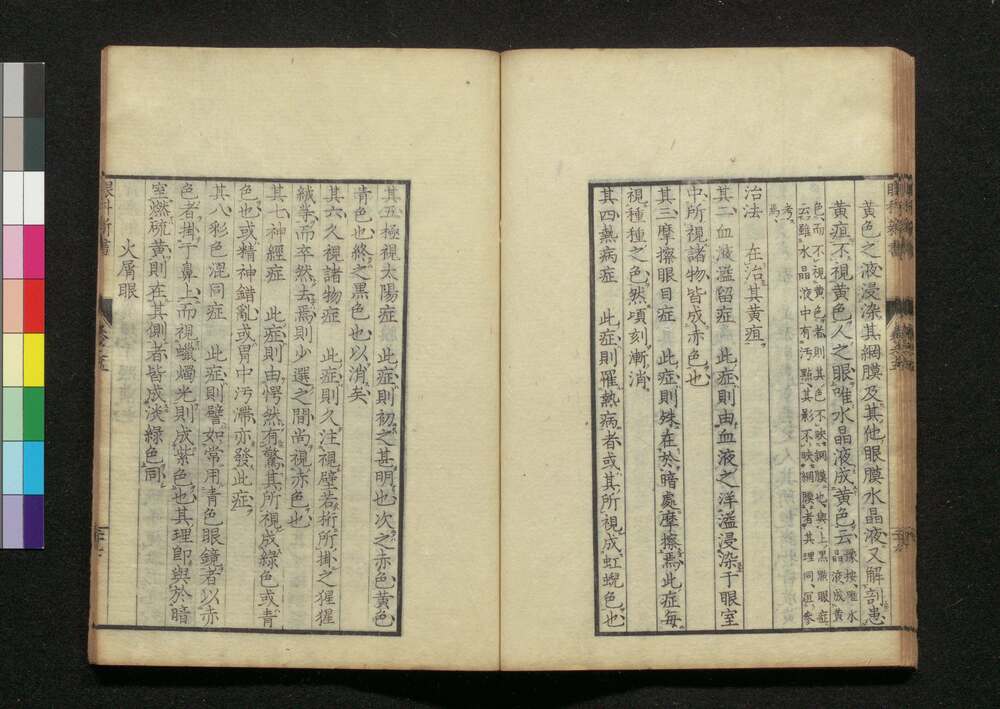 黄色之液浸染其網膜及其他眼膜水晶液又解剖患
黄疸不視黄色人之眼唯水晶液成黄色云
豫按唯水晶液成黄
色而不視黄色者則其色不映網膜也與上黒點眼症
云雖水晶液中有汚點其影不映網膜者其理同宜参
考焉
治法　在治其黄疸
其二血液溢留症　此症則由血液之洋溢浸染于眼室
中所視諸物皆成赤色也
其三摩擦眼目症　此症則殊在於暗處摩擦焉此症毎
視種種之色然頃刻漸消
其四熱病症　此症則罹熱病者或其所視成虹蜺色也
其五極視太陽症　此症則初之甚明也次之赤色黄色
青色也終之黒色也以消矣
其六久視諸物症　此症則久注視壁若桁所掛之猩猩
絨等而卒然去焉則少選之間尚視赤色也
其七神經症　此症則由愕然有驚其所視成綠色或青
色也或精神錯亂或胃中汚滯亦發此症
其八彩色混同症　此症則譬如常用青色眼鏡者以赤
色者掛于鼻上而視蠟燭光則成紫色也其理卽與於暗
室燃硫黄則在其側者皆成淡綠色同
火屑眼
眼科新書